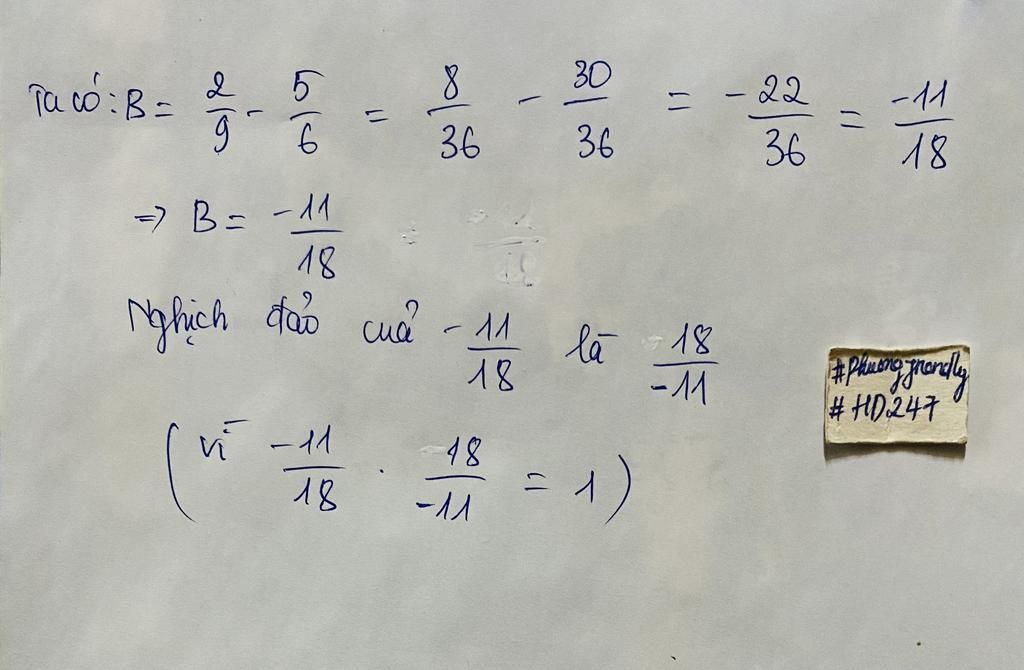 Ta có: B = 2/9 - 5/6 = 8/36 - 30/36 = -22/36 = -11/18
=> B = -11/18
Nghịch đảo của -11/18 là 18/-11
(vì -11/18 . 18/-11 = 1)
#HD247